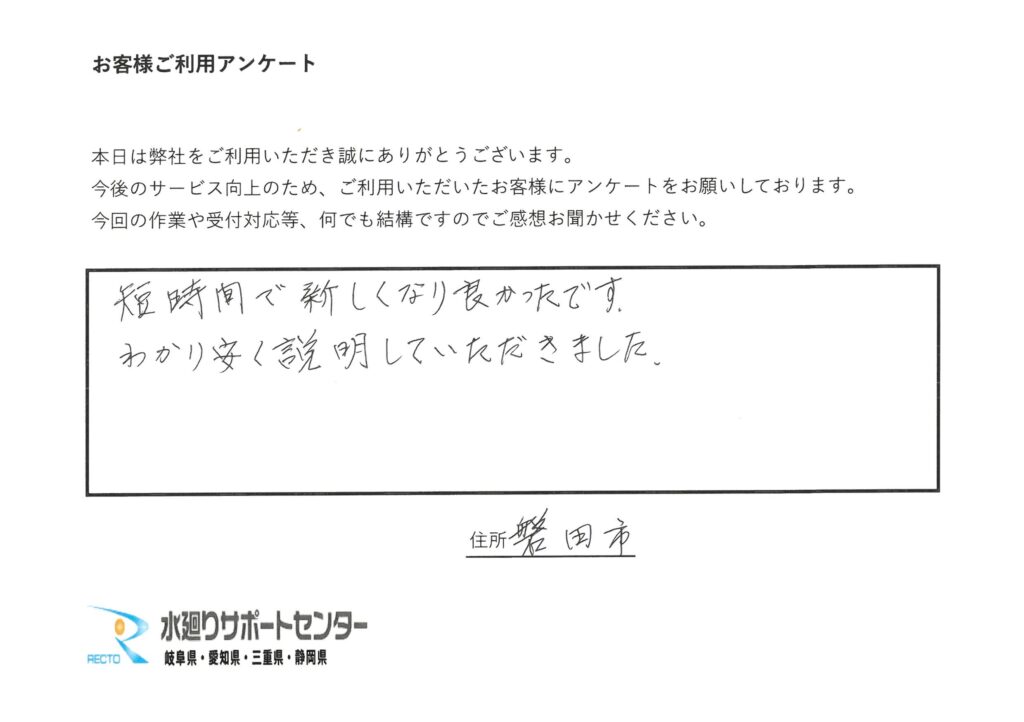 お客様ご利用アンケート
本日は弊社をご利用いただき誠にありがとうございます。
今後のサービス向上のため、ご利用いただいたお客様にアンケートをお願いしております。
今回の作業や受付対応等、何でも結構ですのでご感想お聞かせください。
短時間で新しくなり良かったです.
わかり安く説明していただきました.
住所 磐田市
水廻りサポートセンター
RECTO 岐阜県・愛知県・三重県・静岡県